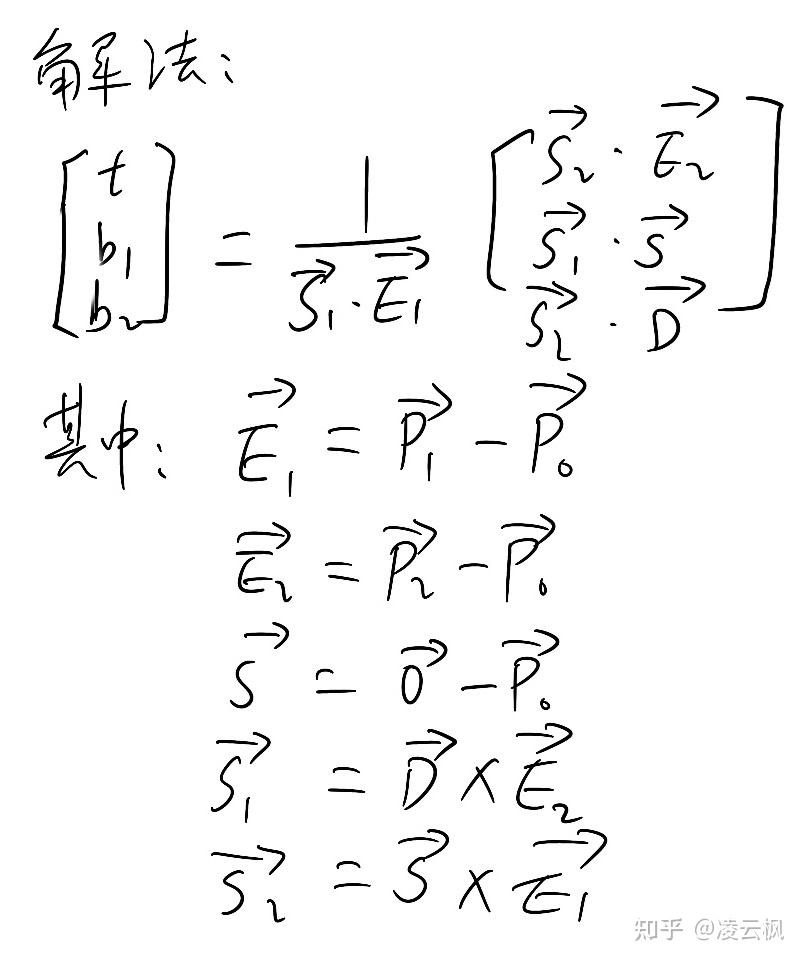 解法:
[t b₁ b₂] = 1/(S₁⃗·E₁⃗) [S₂⃗·E₂⃗ S₁⃗·S⃗ S₂⃗·D⃗]
其中: E₁⃗ = P₁⃗ - P₀⃗
E₂⃗ = P₂⃗ - P₀⃗
S⃗ = O⃗ - P₀⃗
S₁⃗ = D⃗ × E₂⃗
S₂⃗ = S⃗ × E₁⃗
知乎 @凌云枫